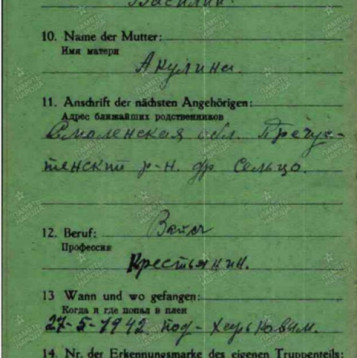 Василий.
10. Name der Mutter:
Имя матери
Акулина.
11. Anschrift der nächsten Angehörigen:
Адрес ближайших родственников
Смоленская обл. Пречис-
тенский р-н. др Сельцо.
12. Beruf:
Профессия
Крестьянин.
13 Wann und wo gefangen:
Когда и где попал в плен
27-5-1942 под-Харьковам.
14. Nr. der Erkennungsmarke des eigenen Truppenteils: